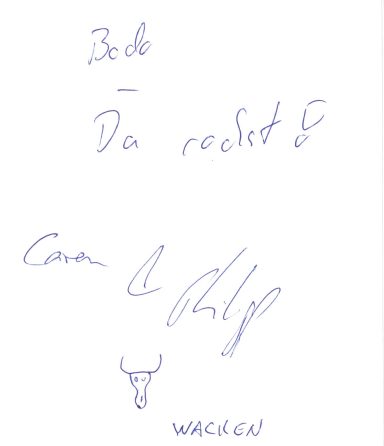 Bodo
–
Du rockst!
Caren &
WACKEN